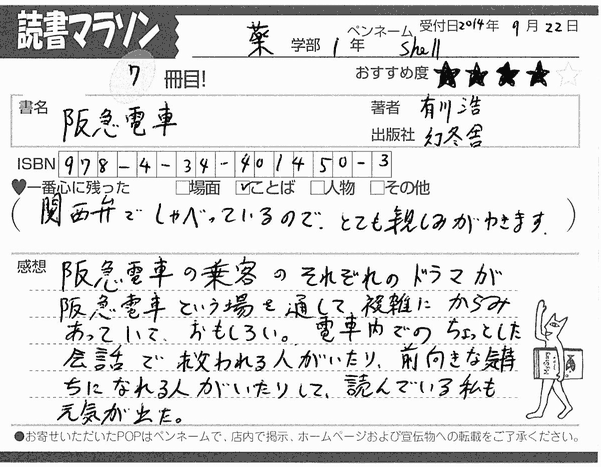 読書マラソン
薬 学部 1年 ペンネーム shell 受付日2014年 9月 22日
7 冊目!
おすすめ度 ★★★★☆
書名 阪急電車
著者 有川 浩
出版社 幻冬舎
ISBN 978-4-34-401450-3
♥一番心に残った □場面 ☑ことば □人物 □その他
(関西弁でしゃべっているので、とても親しみがわきます。)
感想 阪急電車の乗客のそれぞれのドラマが
阪急電車という場を通して、複雑にからみ
あっていて、おもしろい。電車内でのちょっとした
会話で救われる人がいたり、前向きな気持
ちになれる人がいたりして、読んでいる私も
元気が出た。
●お寄せいただいたPOPはペンネームで、店内で掲示、ホームページおよび宣伝物への転載をご了承ください。